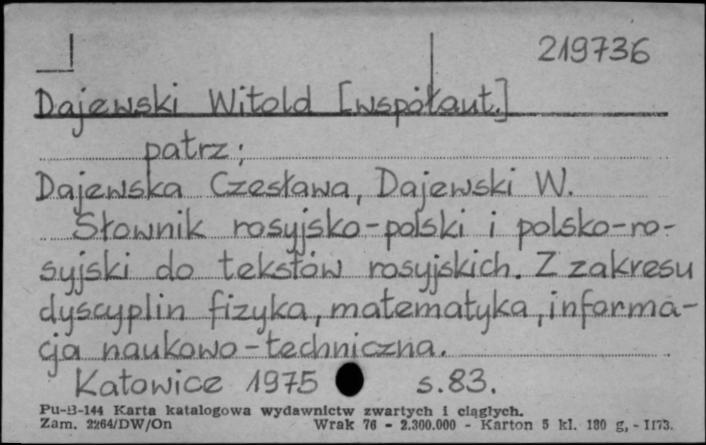 219736
Dajewski Witold [współaut.]
patrz:
Dajewska Czesława, Dajewski W.
Słownik rosyjsko-polski i polsko-ro-
syjski do tekstów rosyjskich. Z zakresu
dyscyplin fizyka, matematyka, informa-
cja naukowo-techniczna.
Katowice 1975 s. 83.
Pu-B-144 Karta katalogowa wydawnictw zwartych i ciągłych.
Zam. 2264/DW/On Wrak 76 - 2.300.000 - Karton 5 kl. 180 g, - II73.